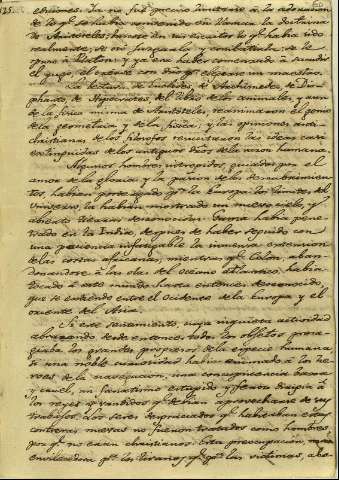 ebuciones. Ya no fué preciso limitarse á la adoracion
de lo qe. se habia convenido en llamar la doctrina
de Aristóteles; buscose en sus escritos lo qe. habia sido
realmente; se osó juzgarla y combatirla; se le
opuso á Platon; y ya era haber comenzado á sacudir
el yugo, el creerse con dro. de elegirse un maestro.
La lectura de Euclides, de Archîmedes, de Dio
phanto, de Hypocrates, del libro de los animales, y aun
de la física misma de Aristóteles, reanimaron el genio
de la geometría y de la física; y las opiniones anti-
christianas de los filosofos renovaron las ideas casi
extinguidas de los antiguos dros. de la razon humana.
Algunos hombres intrepidos, guiados por el
amor de la gloria y la pasion de los descubrimien
tos habian prolongado pa. la Europa los límites del
Universo, la habian mostrado un nuevo cielo, y
abierto tierras desconocidas. Gama habia pene
trado en la India, despues de haber seguido con
una paciencia infatigable la inmensa extension
de las costas africanas; mientras qe. Colon, aban-
donandose á las olas del oceano atlantico, habia
tocado á este mundo hasta entonces desconocido
que se extiende entre el Occidente de la Europa y el
oriente del Asia.
Si este sentimiento, cuya inquieta actividad
abrazando desde entonces todos los objetos, presa-
giaba los grandes progresos de la especie humana,
si una noble curiosidad habia animado á los he-
roes de la navegacion, una codicia baxa
y cruel, un fanatismo estupido y feroz dirigia á
los reyes y vandidos qe. debian aprovecharse de sus
trabajos. Los seres desgraciados qe. habitaban estas
contreras nuevas no fueron tratados como hombres,
por qe. no eran christianos. Esta preocupacion, mas
envilecedora pa. los tiranos, qe. pa. las victimas, aho-